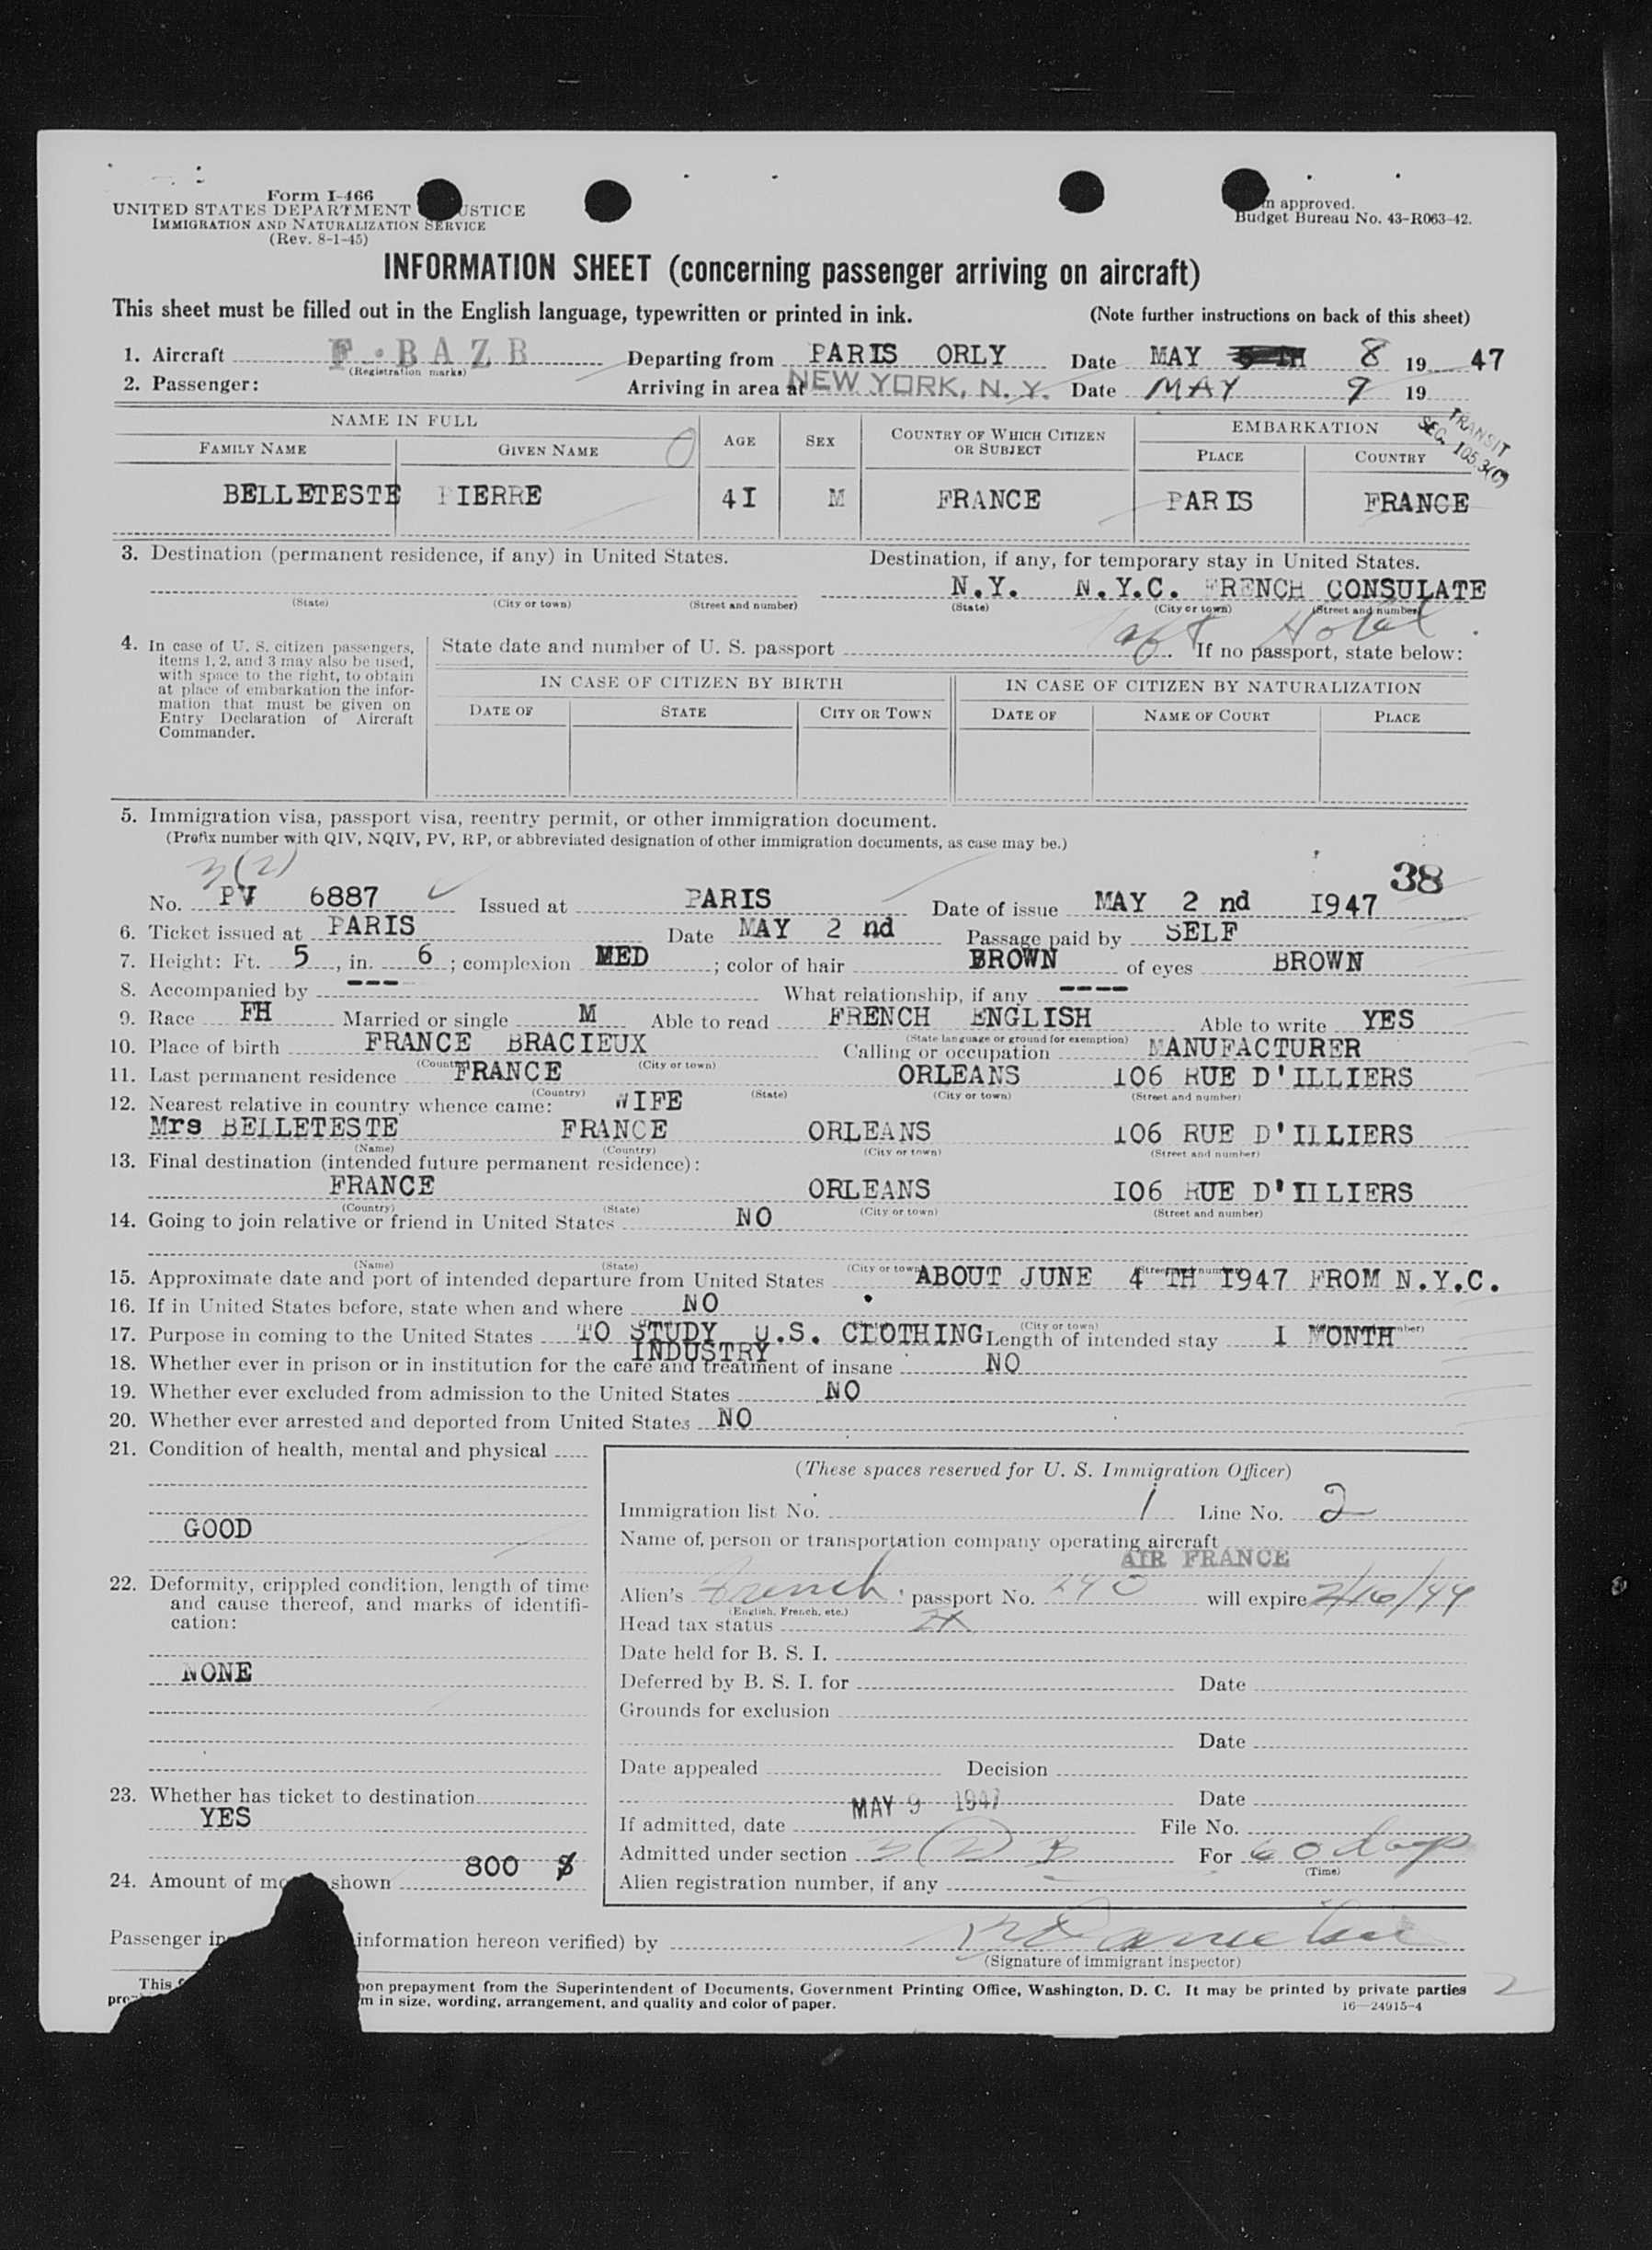 Form I-466
UNITED STATES DEPARTMENT USTICE
IMMIGRATION AND NATURALIZATION SERVICE
(Rev. 8-1-45)
approved.
Budget Bureau No. 43-R063-42.
INFORMATION SHEET (concerning passenger arriving on aircraft)
This sheet must be filled out in the English language, typewritten or printed in ink. (Note further instructions on back of this sheet)
1. Aircraft F-BAZB Departing from PARIS ORLY Date MAY 8 19 47
(Registration marks)
2. Passenger: Arriving in area at NEW YORK, N. Y. Date MAY 9 19
NAME IN FULL AGE SEX COUNTRY OF WHICH CITIZEN OR SUBJECT EMBARKATION
TRANSIT
SEC. 105.3(c)
FAMILY NAME GIVEN NAME PLACE COUNTRY
BELLETESTE PIERRE 4I M FRANCE PARIS FRANCE
3. Destination (permanent residence, if any) in United States. Destination, if any, for temporary stay in United States.
N.Y. N.Y.C. FRENCH CONSULATE
(State) (City or town) (Street and number) (State) (City or town) (Street and number)
Taft Hotel
4. In case of U. S. citizen passengers, items 1, 2, and 3 may also be used, with space to the right, to obtain at place of embarkation the information that must be given on Entry Declaration of Aircraft Commander.
State date and number of U. S. passport If no passport, state below:
IN CASE OF CITIZEN BY BIRTH IN CASE OF CITIZEN BY NATURALIZATION
DATE OF STATE CITY OR TOWN DATE OF NAME OF COURT PLACE
5. Immigration visa, passport visa, reentry permit, or other immigration document.
(Prefix number with QIV, NQIV, PV, RP, or abbreviated designation of other immigration documents, as case may be.)
3(2)
38
No. PV 6887 Issued at PARIS Date of issue MAY 2 nd I947
6. Ticket issued at PARIS Date MAY 2 nd Passage paid by SELF
7. Height: Ft. 5, in. 6; complexion MED; color of hair BROWN of eyes BROWN
8. Accompanied by --- What relationship, if any ----
9. Race FH Married or single M Able to read FRENCH ENGLISH Able to write YES
(State language or ground for exemption)
10. Place of birth FRANCE BRACIEUX Calling or occupation MANUFACTURER
(Country) (City or town)
11. Last permanent residence FRANCE ORLEANS I06 RUE D'ILLIERS
(Country) (State) (City or town) (Street and number)
12. Nearest relative in country whence came: WIFE
Mrs BELLETESTE FRANCE ORLEANS I06 RUE D'ILLIERS
(Name) (Country) (City or town) (Street and number)
13. Final destination (intended future permanent residence):
FRANCE ORLEANS I06 RUE D'ILLIERS
(Country) (State) (City or town) (Street and number)
14. Going to join relative or friend in United States NO
(Name) (State) (City or town) (Street and number)
15. Approximate date and port of intended departure from United States ABOUT JUNE 4 TH I947 FROM N.Y.C.
16. If in United States before, state when and where NO
(City or town)
17. Purpose in coming to the United States TO STUDY U.S. CLOTHING Length of intended stay I MONTH
INDUSTRY
18. Whether ever in prison or in institution for the care and treatment of insane NO
19. Whether ever excluded from admission to the United States NO
20. Whether ever arrested and deported from United States NO
21. Condition of health, mental and physical
GOOD
22. Deformity, crippled condition, length of time and cause thereof, and marks of identification:
NONE
23. Whether has ticket to destination
YES
24. Amount of mo shown 800 $
(These spaces reserved for U. S. Immigration Officer)
Immigration list No. 1 Line No. 2
Name of person or transportation company operating aircraft
AIR FRANCE
Alien's French passport No. 240 will expire
(English, French, etc.)
Head tax status
Date held for B. S. I.
Deferred by B. S. I. for Date
Grounds for exclusion
Date
Date appealed Decision
Date
MAY 9 1947
If admitted, date File No.
Admitted under section 3(2) B For 60 days
(Time)
Alien registration number, if any
Passenger in information hereon verified) by
(Signature of immigrant inspector)
This pon prepayment from the Superintendent of Documents, Government Printing Office, Washington, D. C. It may be printed by private parties
m in size, wording, arrangement, and quality and color of paper.
16—24915-4
2